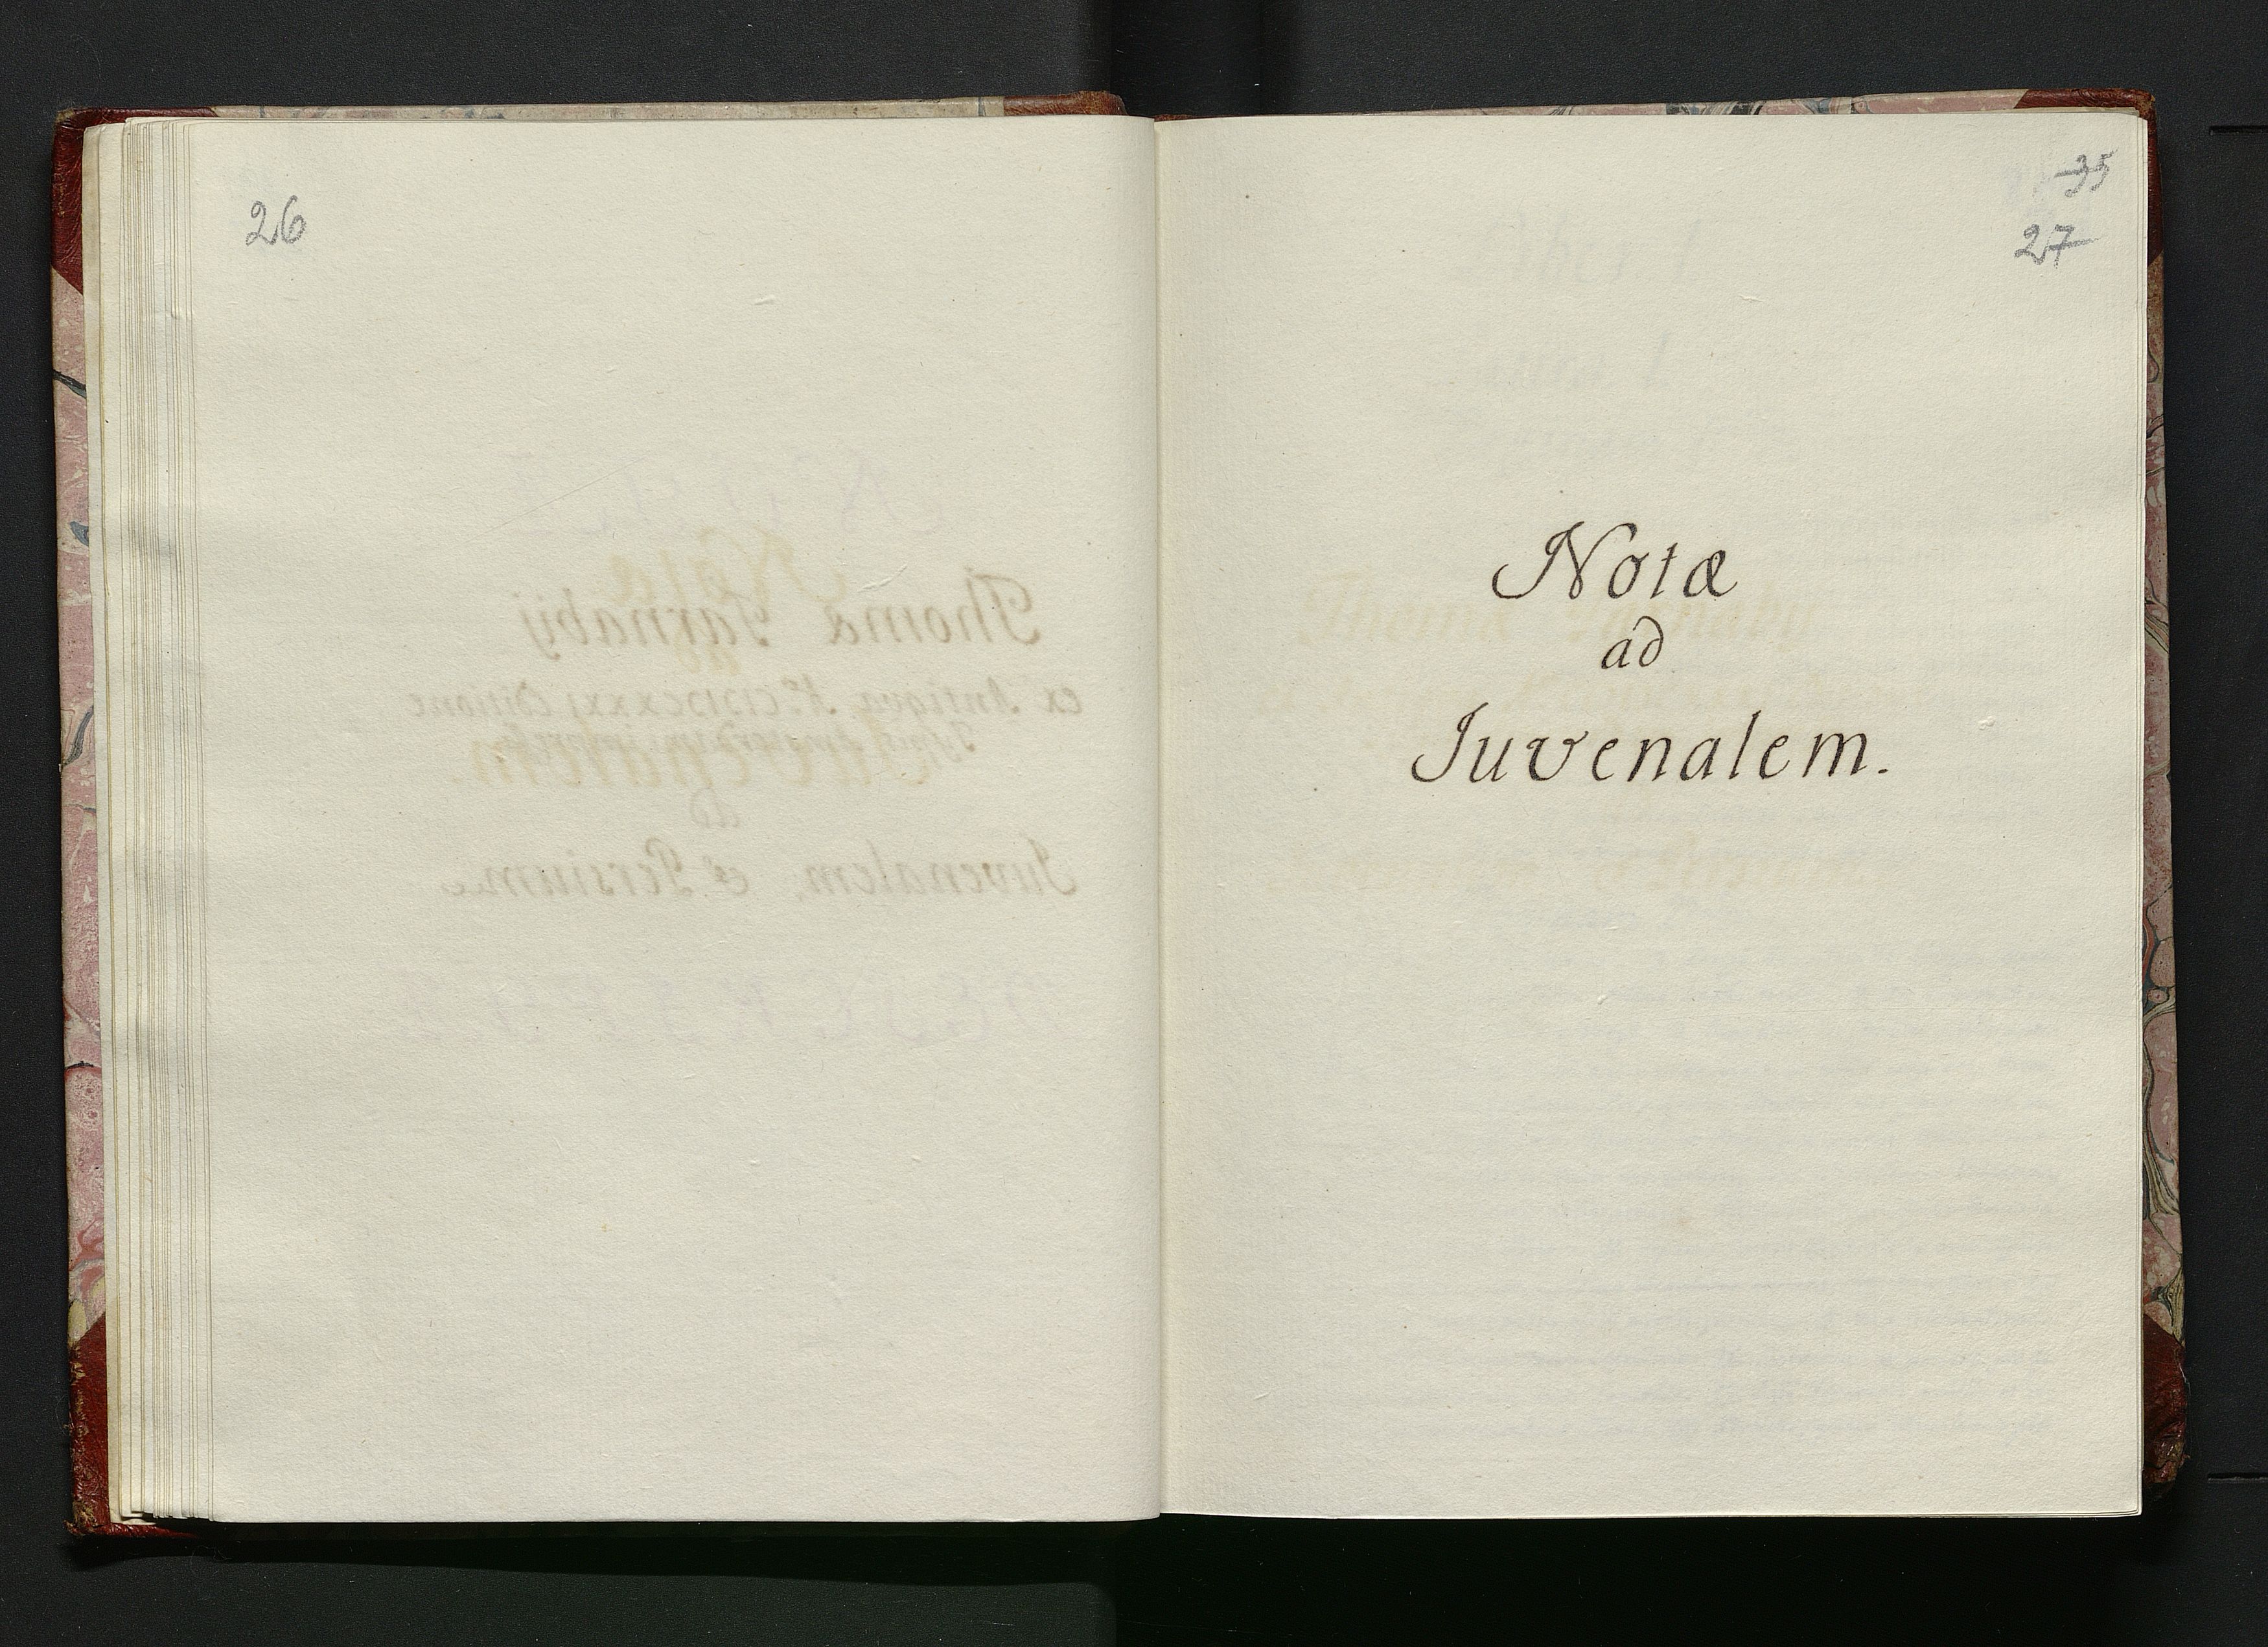 26
35
27
Notæ
ad
Juvenalem.